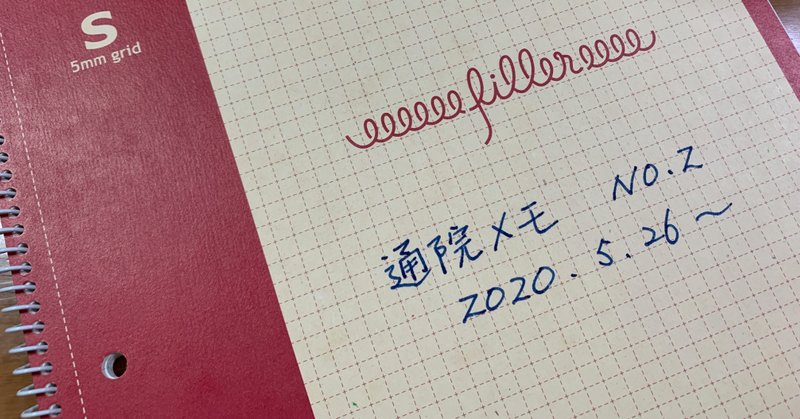 S
5mm grid
filler
通院メモ NO.2
2020.5.26〜